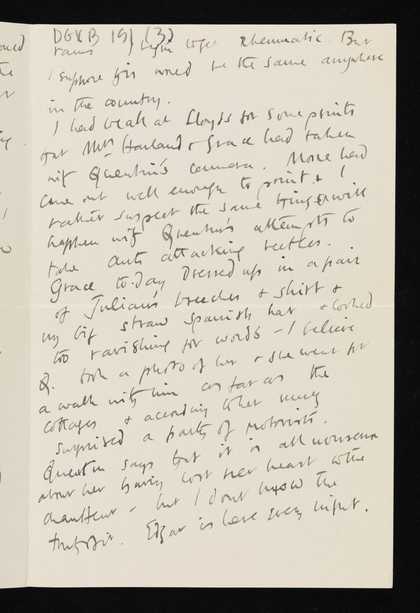 DGVB 19/ (3)
rains I begin to get rheumatic. But
I suppose this would be the same anywhere
in the country.
I had to call at Lloyds for some prints
that Mrs Harland & Grace had taken
with Quentin's camera. None had
come out well enough to print & I
rather suspect the same thing will
happen with Quentin's attempts to
take ants attacking beetles.
Grace to-day dressed up in a pair
of Julian's breeches & shirt &
my big straw Spanish hat & looked
too ravishing for words – I believe
Q. took a photo of her & she went for
a walk with him as far as the
cottages & according to her
surprised a party of motorists.
Quentin says that it is all nonsense
about her having lost her heart to the
chauffeur – but I dont know the
truth of it. Edgar is here every night.